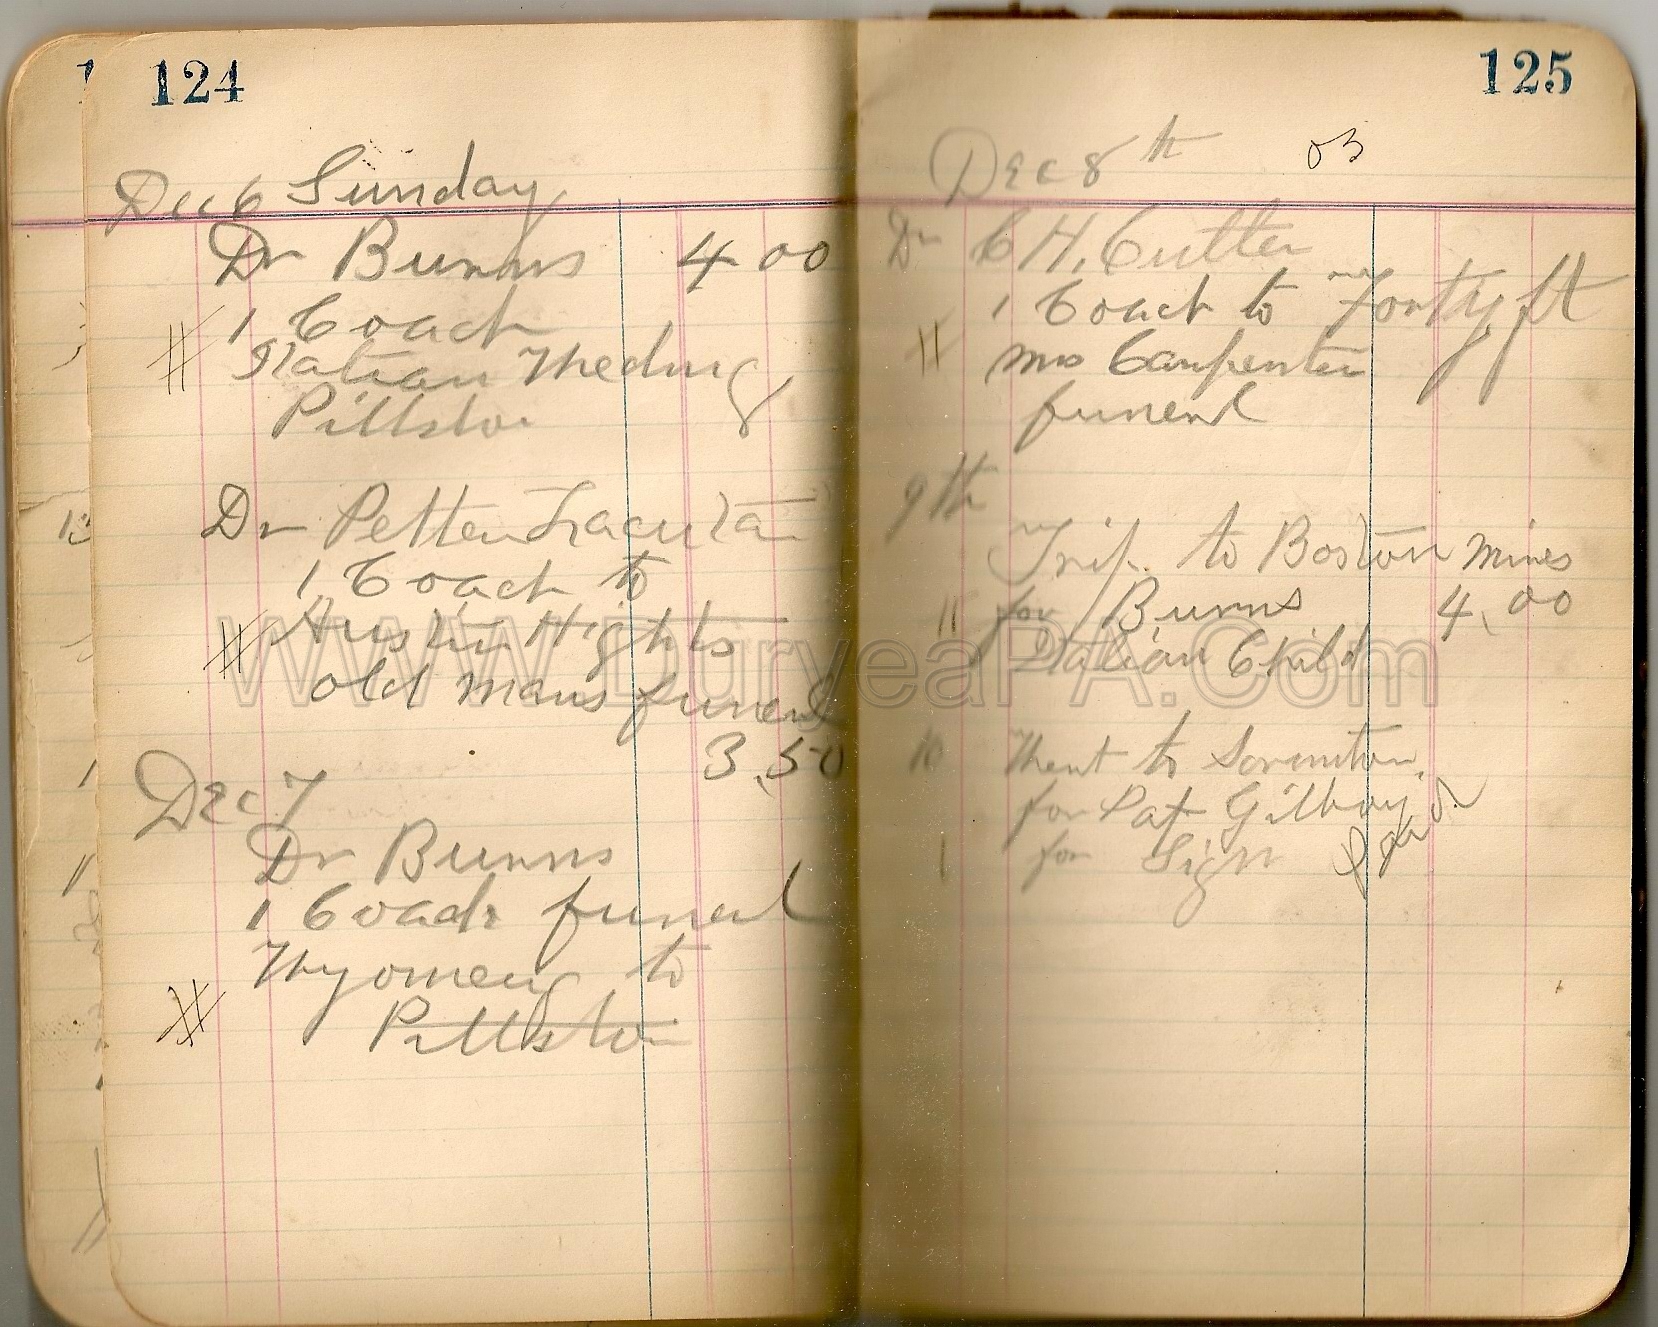 124
Dec 6 Sunday
Dr Burns 4 00
1 Coach
# Italian Weding
Pittston
Dr Petter
1 Coach to
# Austin Hights
old mans funerl
3.50
Dec 7
Dr Burns
1 Coach funerl
Wyomeng to
# Pittston
125
Dec 8th 03
Dr C H. Cutter
1 Coach to Forty ft
11 Mrs Carpenter
funerl
9th
Trip to Boston Mines
11 for Burns 4.00
Italian Child
10 Went to Scranton
for Pat Gilboy
1 for Sign paid
www.DuryeaPA.Com